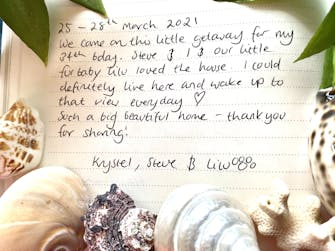 25 - 28th March 2021
We came on this little getaway for my
34th bday. Steve & I & our little
furbaby Liw loved the house. I could
definitely live here and wake up to
that view everyday ♡
Such a big beautiful home - thank you
for sharing!
Krystel, Steve & Liw